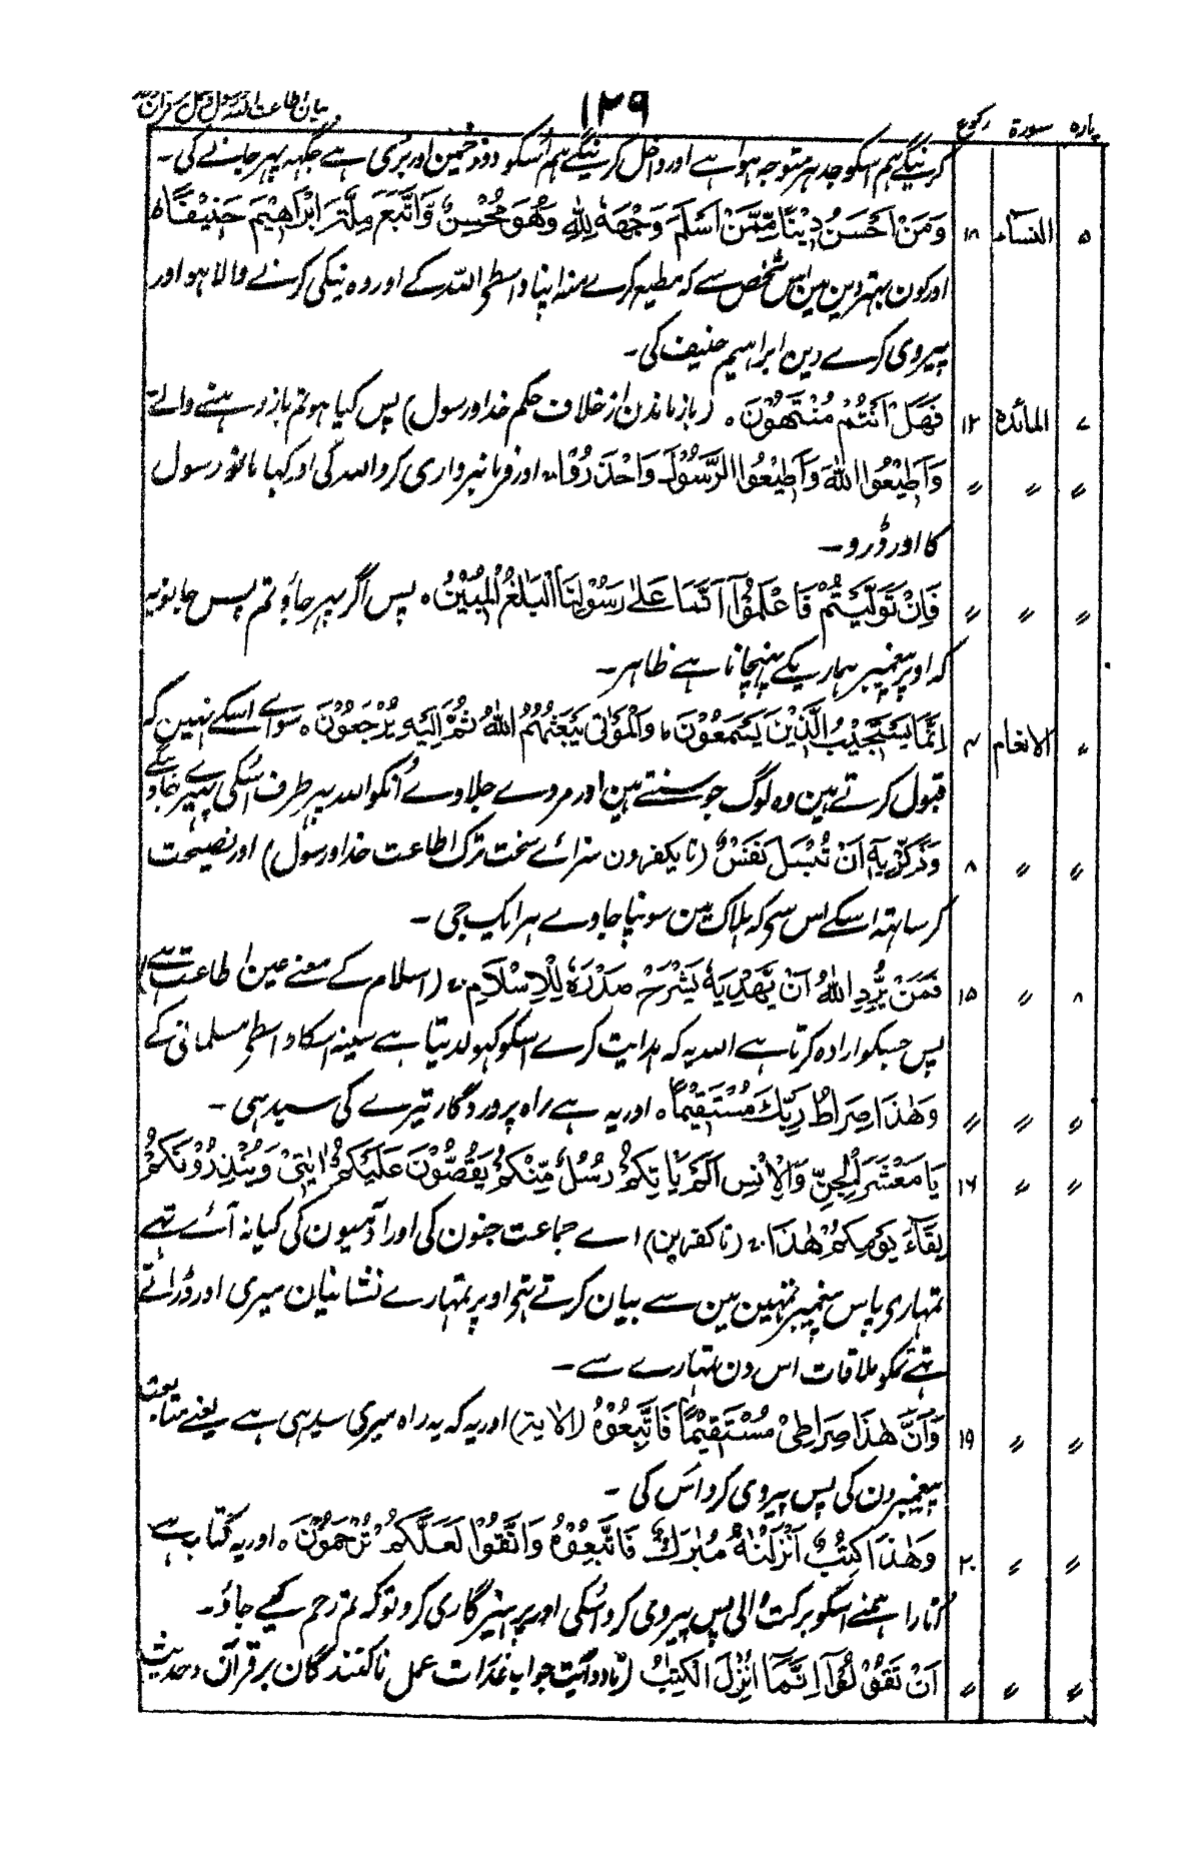 ۱۲۹
بیان اطاعت اللہ و رسول و عمل بر قرآن
پارہ سورۃ رکوع
کرینگے ہم اسکو جدہر متوجہ ہوا ہے اور داخل کرینگے ہم اُسکو دوزخ مین اور بُری ہے جگہہ پہر جانے کی ۔
۵ النساء ۱۸ وَمَنْ اَحْسَنُ دِيْنًا مِّمَّنْ اَسْلَمَ وَجْهَهٗ لِلّٰهِ وَهُوَ مُحْسِنٌ وَّاتَّبَعَ مِلَّةَ اِبْرٰهِيْمَ حَنِيْفًا ط
اور کون بہتر دین مین اس شخص سے کہ مطیع کرے منہ اپنا واسطے اللہ کے اور وہ نیکی کرنے والا ہو اور
پیروی کرے دین ابراہیم حنیف کی ۔
۷ المائدۃ ۱۲ فَهَلْ اَنْتُمْ مُّنْتَهُوْنَ ہ (باز ماندن از خلاف حکم خدا ورسول) پس کیا ہو تم باز رہنے والے
〃 〃 〃 وَاَطِيْعُوا اللّٰهَ وَاَطِيْعُوا الرَّسُوْلَ وَاحْذَرُوْا ۔ اور فرمانبرداری کرو اللہ کی اور کہا مانو رسول
کا اور ڈرو ۔
〃 〃 〃 فَاِنْ تَوَلَّيْتُمْ فَاعْلَمُوْٓا اَنَّمَا عَلٰى رَسُوْلِنَا الْبَلٰغُ الْمُبِيْنُ ہ پس اگر پہر جاؤ تم پس جانو یہ
کہ اوپر پیغمبر ہمارے کے پہنچانا ہے ظاہر ۔
〃 الانعام ۴ اِنَّمَا يَسْتَجِيْبُ الَّذِيْنَ يَسْمَعُوْنَ ط وَالْمَوْتٰى يَبْعَثُهُمُ اللّٰهُ ثُمَّ اِلَيْهِ يُرْجَعُوْنَ ہ سواے اسکے نہین کہ
قبول کرتے ہین وہ لوگ جو سنتے ہین اور مردے جلاوے اُنکو اللہ پہر طرف اُسکی پہیرے جاوینگے
〃 〃 ۸ وَذَكِّرْ بِهٖٓ اَنْ تُبْسَلَ نَفْسٌ (تا یکفرون سزائے سخت ترک اطاعت خدا ورسول) اور نصیحت
کر ساتہہ اسکے اس سے کہ ہلاک مین سونپا جاوے ہر ایک جی ۔
۸ 〃 ۱۵ فَمَنْ يُّرِدِ اللّٰهُ اَنْ يَّهْدِيَهٗ يَشْرَحْ صَدْرَهٗ لِلْاِسْلَامِ (اسلام کے معنے عین اطاعت ہے)
پس جسکو ارادہ کرتا ہے اللہ یہ کہ ہدایت کرے اسکو کہولدیتا ہے سینہ اسکا واسطے مسلمانی کے
〃 〃 〃 وَهٰذَا صِرَاطُ رَبِّكَ مُسْتَقِيْمًا ہ اور یہ ہے راہ پروردگار تیرے کی سیدہی ۔
〃 〃 ۱۶ يَا مَعْشَرَ الْجِنِّ وَالْاِنْسِ اَلَمْ يَاْتِكُمْ رُسُلٌ مِّنْكُمْ يَقُصُّوْنَ عَلَيْكُمْ اٰيٰتِيْ وَيُنْذِرُوْنَكُمْ
لِقَآءَ يَوْمِكُمْ هٰذَا ط (تا کفرین) اے جماعت جنون کی اور آدمیون کی کیا نہ آئے تہے
تمہاری پاس پیغمبر تمہین مین سے بیان کرتے تہے اوپر تمہارے نشانیان میری اور ڈراتے
تہے تمکو ملاقات اس دن تمہارے سے ۔
〃 〃 ۱۹ وَاَنَّ هٰذَا صِرَاطِيْ مُسْتَقِيْمًا فَاتَّبِعُوْهُ (الآیۃ) اور یہ کہ یہ راہ میری سیدہی ہے یعنے متابعت
پیغمبرون کی پس پیروی کرو اسکی ۔
〃 〃 ۲۰ وَهٰذَا كِتٰبٌ اَنْزَلْنٰهُ مُبٰرَكٌ فَاتَّبِعُوْهُ وَاتَّقُوْا لَعَلَّكُمْ تُرْحَمُوْنَ ہ اور یہ کتاب ہے
اُتارا ہمنے اسکو برکت والی پس پیروی کرو اُسکی اور پرہیزگاری کرو توکہ تم رحم کیے جاؤ ۔
〃 〃 〃 اَنْ تَقُوْلُوْٓا اِنَّمَآ اُنْزِلَ الْكِتٰبُ (تا دو آیت جواب عذرات عمل ناکنندگان بر قرآن وحدیث